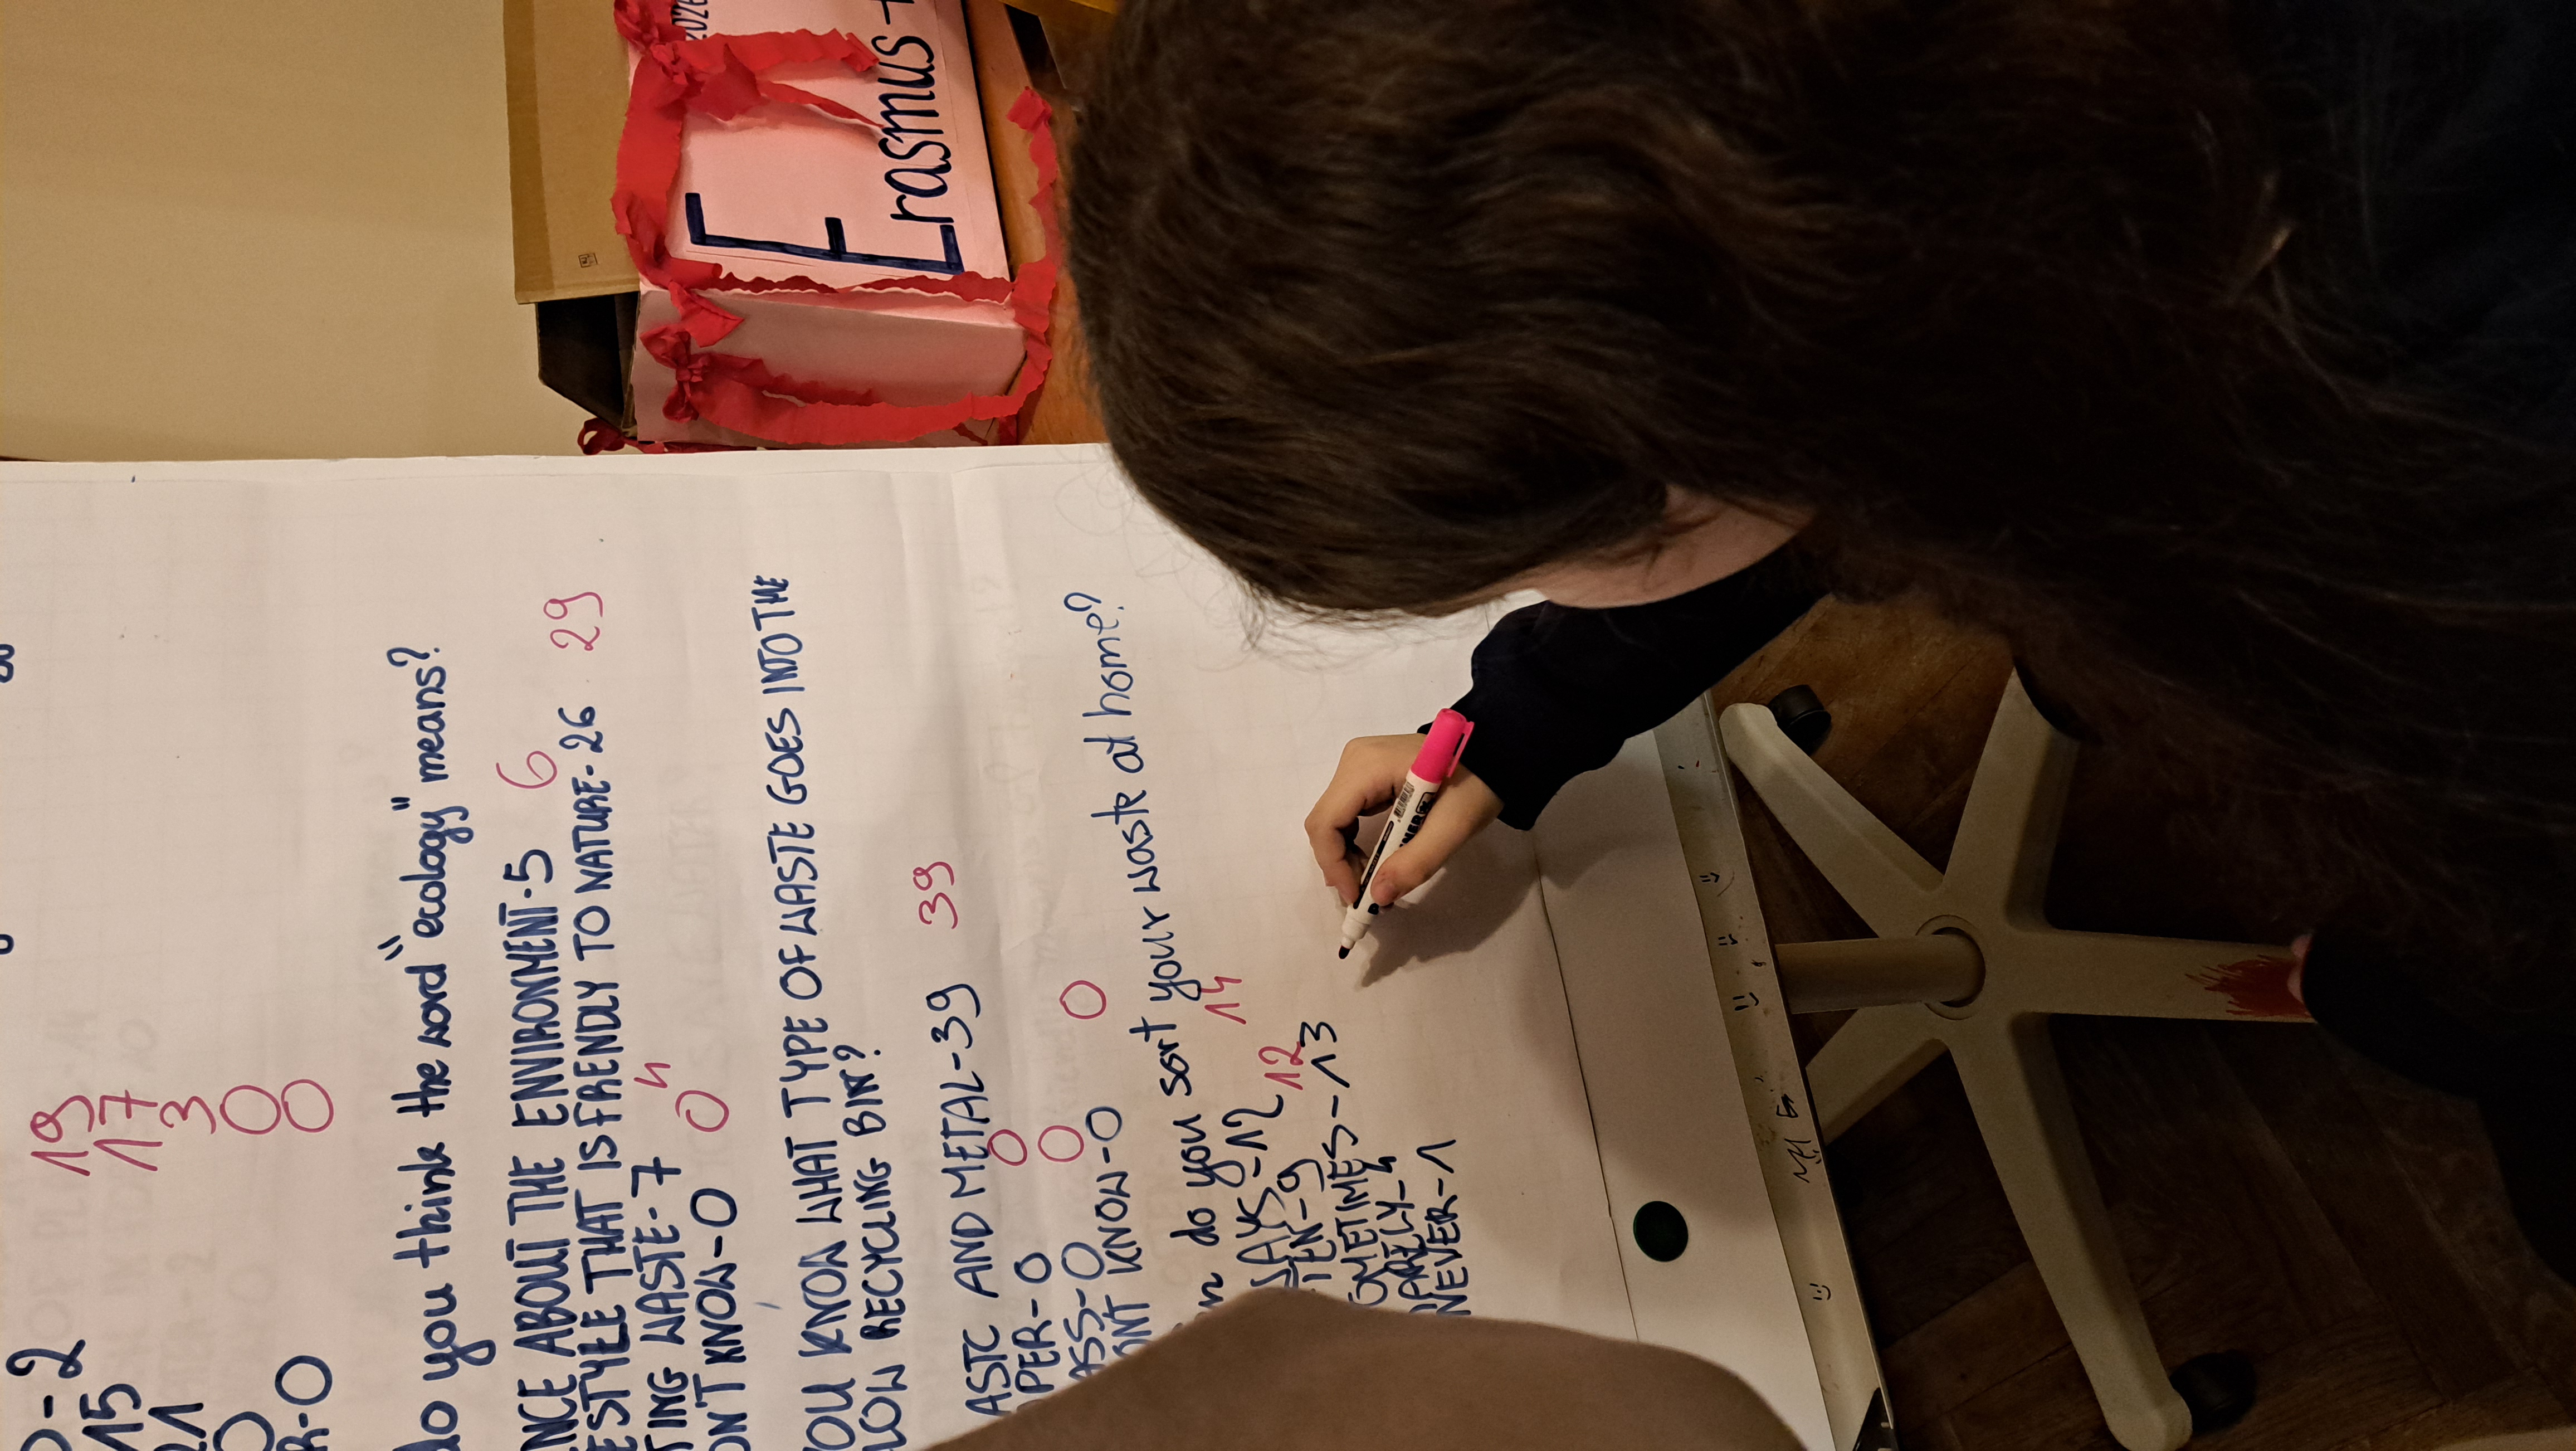 2026
E
Erasmus +
19
17
3
0
0
-2
15
21
0
R-0
do you think the word "ecology" means?
ENCE ABOUT THE ENVIRONMENT-5 6
ESTYLE THAT IS FRENDLY TO NATURE-26 29
TING WASTE-7 4
ON'T KNOW-0 0
YOU KNOW WHAT TYPE OF WASTE GOES INTO THE
LOW RECYCLING BIN?
ASTC AND METAL-39 39
APER-0 0
ASS-0 0
ONT KNOW-0 0
do you sort your waste at home?
WAYS-12 14
TEN-9 12
OMETIMES-13
RARELY-4
NEVER-1